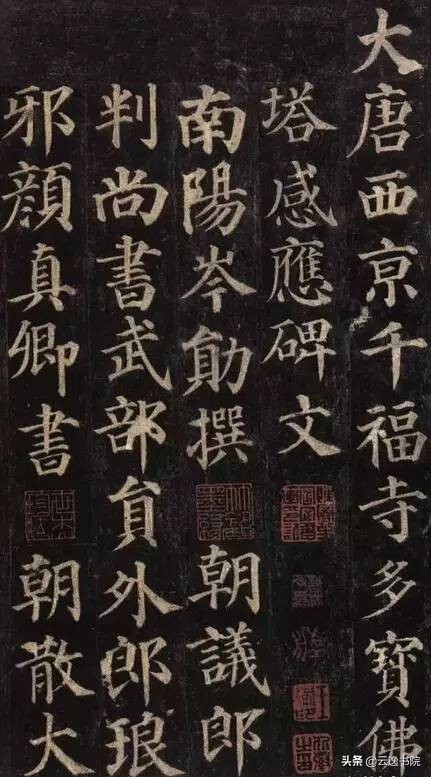 大唐西京千福寺多寶佛
塔感應碑文
南陽岑勛撰 朝議郎
判尚書武部員外郎琅
邪顏真卿書 朝散大
头条 @云逸书院